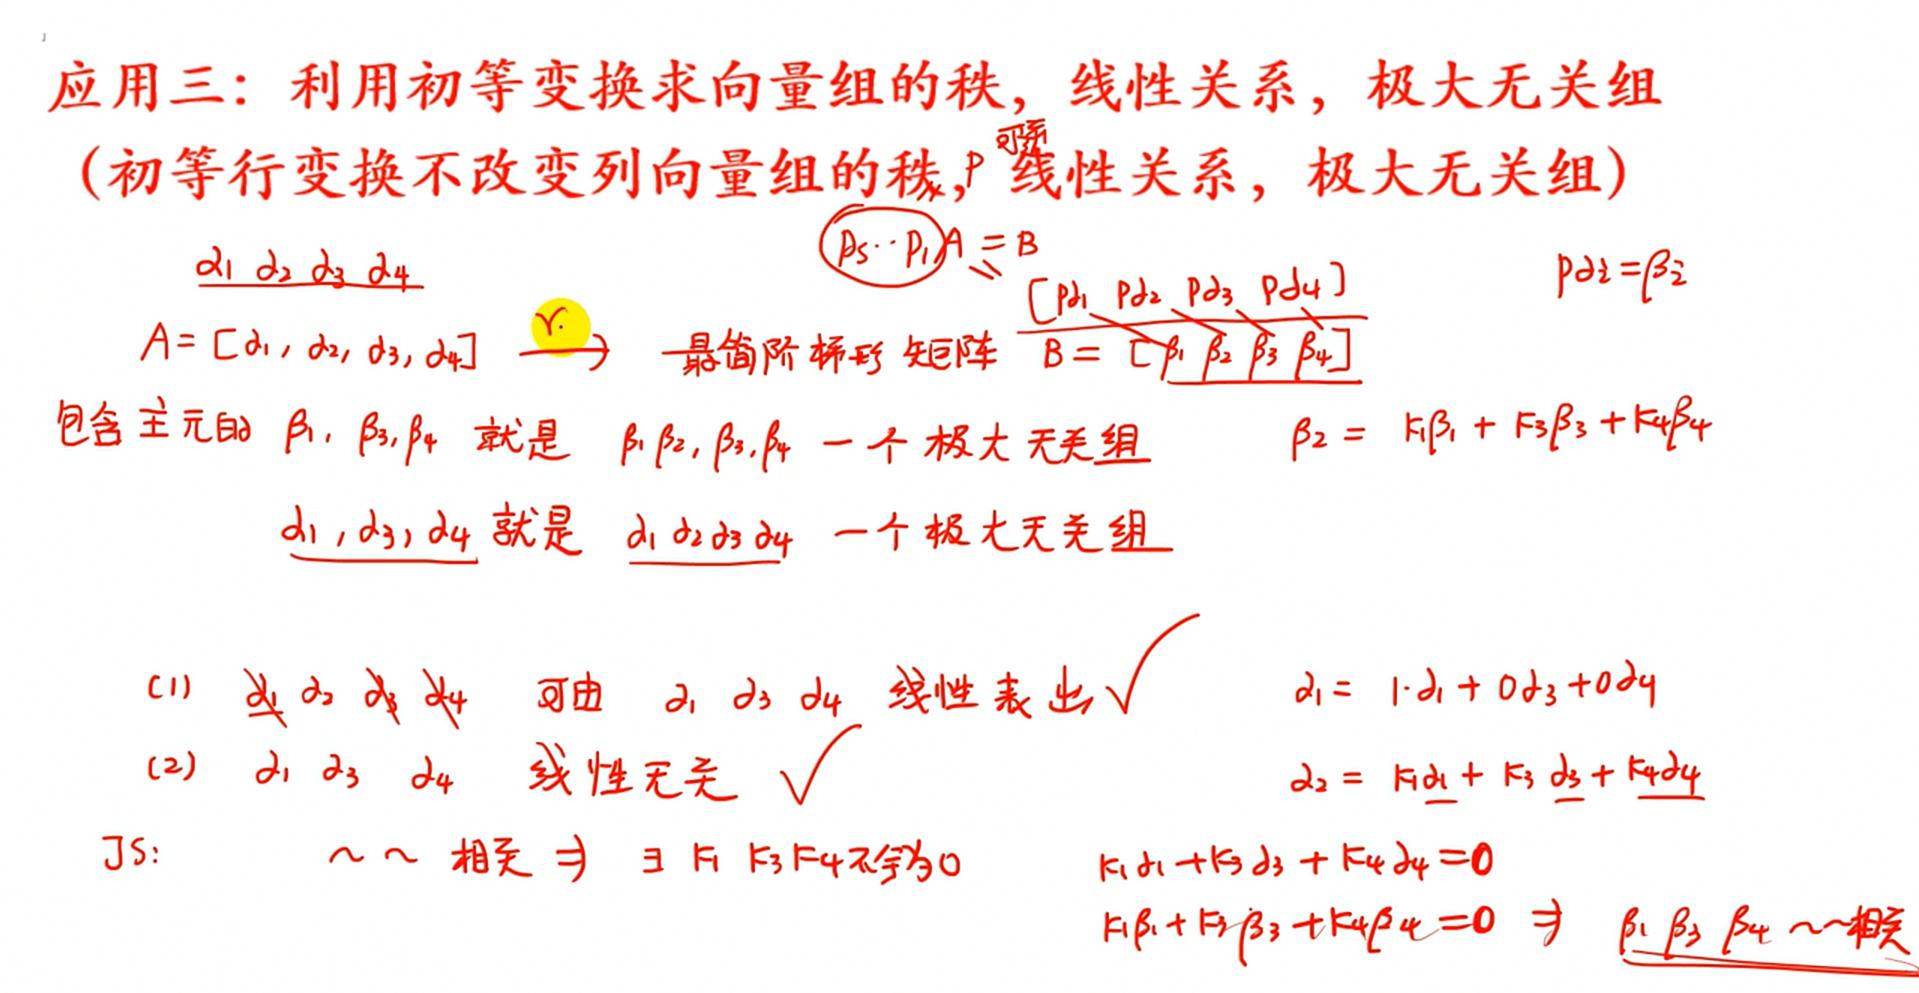 应用三：利用初等变换求向量组的秩，线性关系，极大无关组
（初等行变换不改变列向量组的秩，线性关系，极大无关组）
P 可逆
α1 α2 α3 α4
Ps‥P1A = B
Pαi=βi
[Pα1 Pα2 Pα3 Pα4]
A=[α1, α2, α3, α4] r. → 最简阶梯形矩阵 B=[β1 β2 β3 β4]
包含主元的 β1, β3, β4 就是 β1 β2, β3, β4 一个极大无关组 β2 = k1β1 + k3β3 + k4β4
α1, α3, α4 就是 α1 α2 α3 α4 一个极大无关组
(1) α1 α2 α3 α4 可由 α1 α3 α4 线性表出 √ α1 = 1·α1 + 0α3 + 0α4
(2) α1 α3 α4 线性无关 √ α2 = k1α1 + k3α3 + k4α4
JS: ~ ~ 相关 ⇒ ∃ k1 k3 k4 不全为0 k1α1 + k3α3 + k4α4 = 0
k1β1 + k3β3 + k4β4 = 0 ⇒ β1 β3 β4 ~~相关